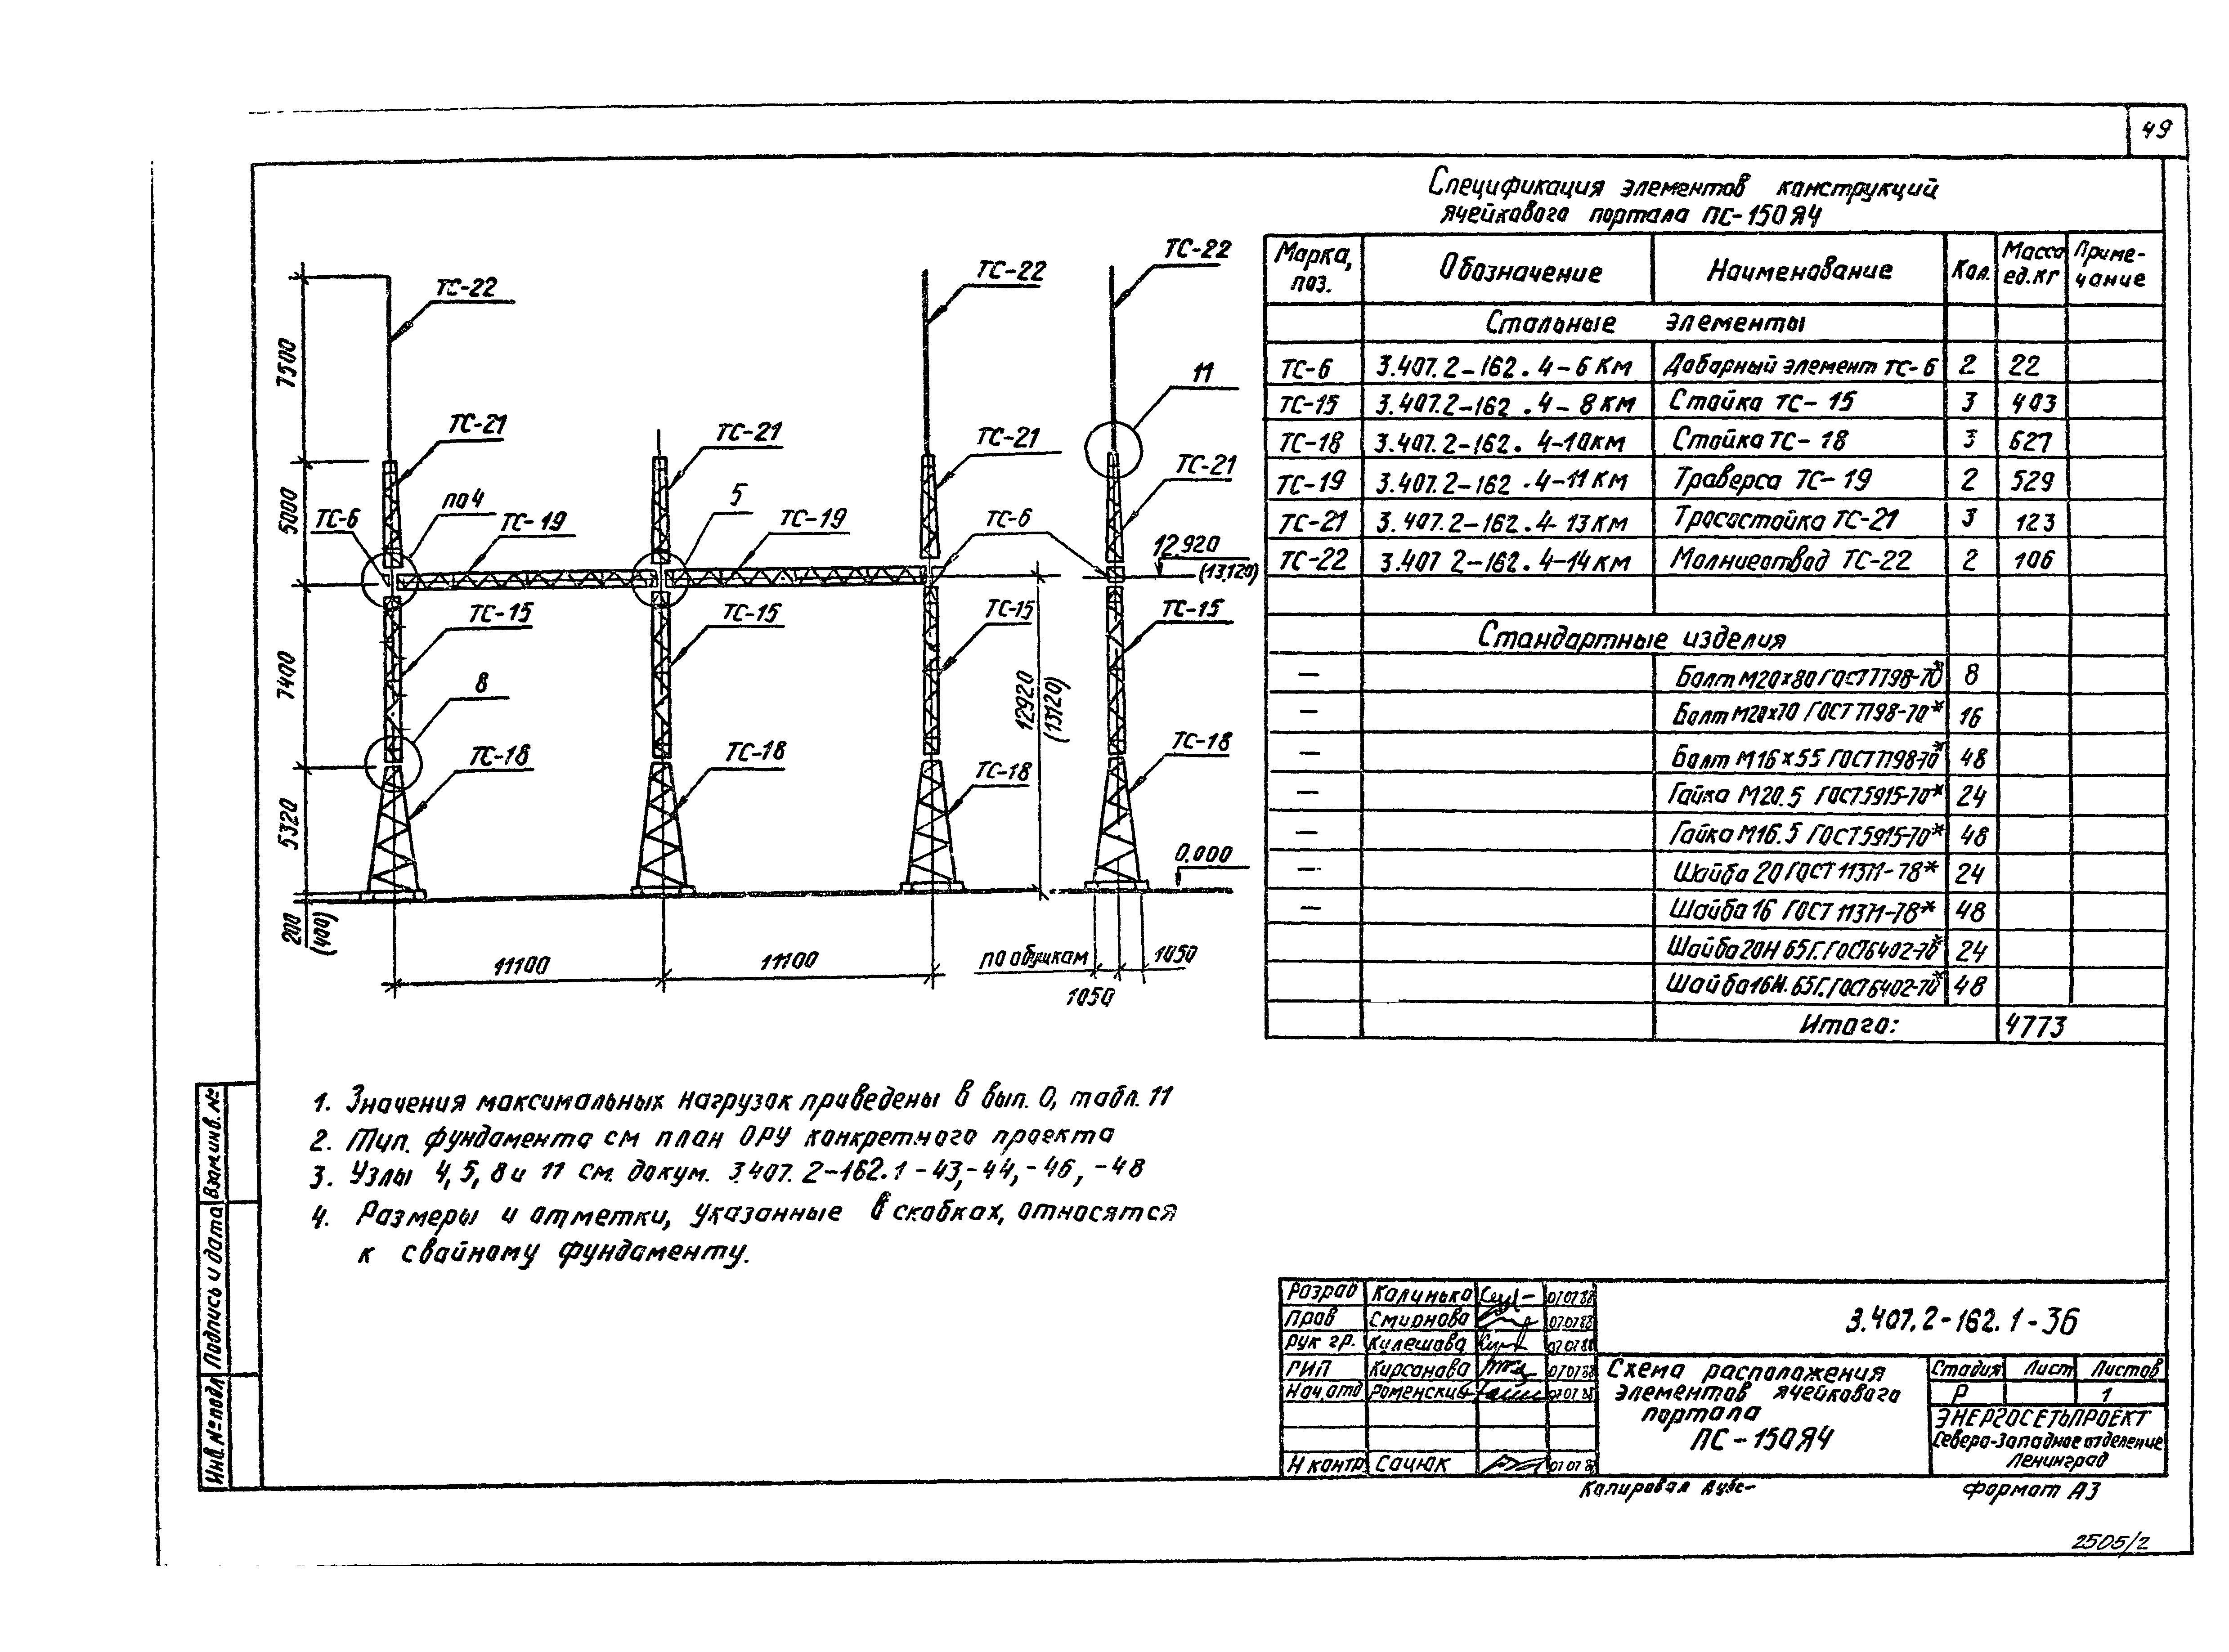 49
Спецификация элементов конструкций
ячейкового портала ПС-150Я4
Марка, поз. Обозначение Наименование Кол. Масса ед.кг Приме-чание
Стальные элементы
ТС-6 3.407.2-162.4-6КМ Доборный элемент ТС-6 2 22
ТС-15 3.407.2-162.4-8КМ Стойка ТС-15 3 403
ТС-18 3.407.2-162.4-10КМ Стойка ТС-18 3 627
ТС-19 3.407.2-162.4-11КМ Траверса ТС-19 2 529
ТС-21 3.407.2-162.4-13КМ Тросостойка ТС-21 3 123
ТС-22 3.407 2-162.4-14КМ Молниеотвод ТС-22 2 106
Стандартные изделия
— Болт М20х80 ГОСТ 7798-70* 8
— Болт М20х70 ГОСТ 7798-70* 16
— Болт М16х55 ГОСТ 7798-70* 48
— Гайка М20.5 ГОСТ 5915-70* 24
— Гайка М16.5 ГОСТ 5915-70* 48
— Шайба 20 ГОСТ 11371-78* 24
— Шайба 16 ГОСТ 11371-78* 48
Шайба 20Н 65Г. ГОСТ 6402-70* 24
Шайба 16Н. 65Г. ГОСТ 6402-70* 48
Итого: 4773
ТС-22
ТС-22
ТС-22
7500
11
ТС-21
ТС-21
ТС-21
ТС-21
5000
ТС-6
по 4
ТС-19
5
ТС-19
ТС-6
12.920
(13.120)
ТС-15
ТС-15
ТС-15
ТС-15
7400
8
12920
(13120)
ТС-18
ТС-18
ТС-18
ТС-18
5320
0.000
200
(400)
11100
11100
по обушкам
1050
1050
1. Значения максимальных нагрузок приведены в вып. 0, табл. 11
2. Тип. фундамента см план ОРУ конкретного проекта
3. Узлы 4, 5, 8 и 11 см. докум. 3.407. 2-162.1-43,-44,-46,-48
4. Размеры и отметки, указанные в скобках, относятся
к свайному фундаменту.
Взам.инв. №
Подпись и дата
Инв. № подл
Разраб Калинько 07.07.88
Пров Смирнова 07.07.88
Рук гр. Кулешова 07.07.88
ГИП Кирсанова 07.07.88
Нач.отд Роменский 07.07.88
Н контр Сацюк 07.07.88
3.407.2-162.1-36
Схема расположения
элементов ячейкового
портала
ПС-150Я4
Стадия Лист Листов
Р 1
ЭНЕРГОСЕТЬПРОЕКТ
Северо-Западное отделение
Ленинград
Копировал
Формат А3
2505/2